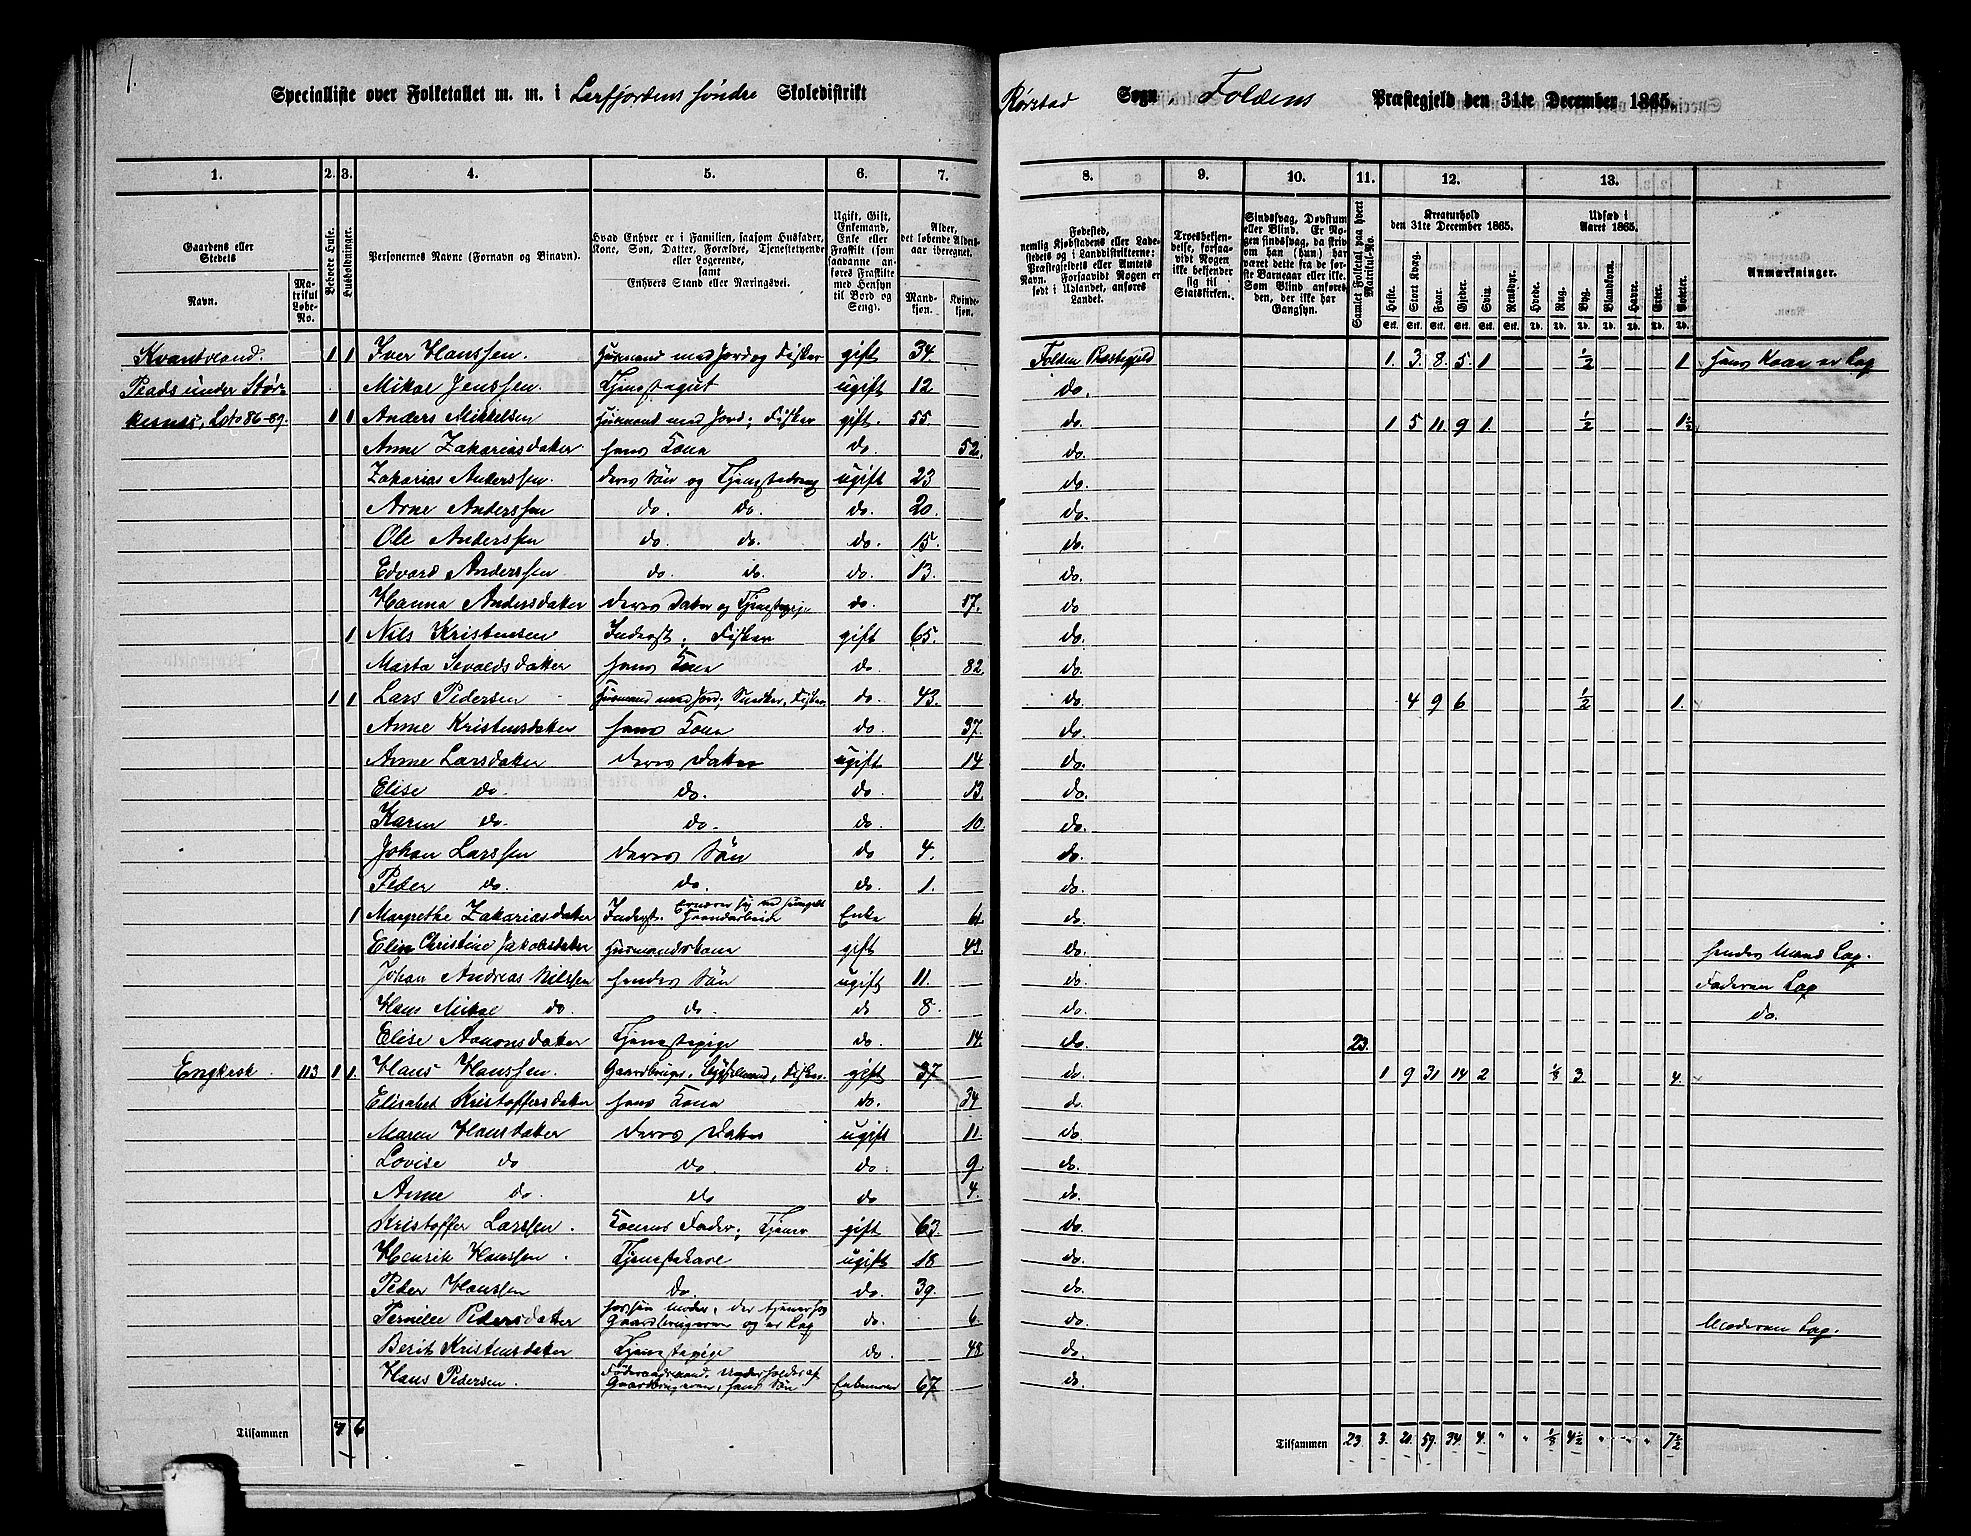 1.
Specialliste over Folketallet m. m. i Lerfjordens søndre Skoledistrikt
Rørstad Sogn, Foldens Præstegjeld den 31te December 1865.
1. 2. 3. 4. 5. 6. 7. 8. 9. 10. 11. 12. 13.
Gaardens eller Stedets
Navn.
Matrikul Løbe-No.
Beboede Huse.
Husholdninger.
Personernes Navne (Fornavn og Binavn).
Hvad Enhver er i Familien, saasom Husfader, Kone, Søn, Datter, Forældre, Tjenestetyende eller Logerende, samt Enhvers Stand eller Næringsvei.
Ugift, Gift, Enkemand, Enke eller Fraskilt (som saadanne anføres Fraskilte med Hensyn til Bord og Seng).
Alder, det løbende Aldersaar iberegnet.
Mandkjøn. Kvindekjøn.
Fødested, nemlig Kjøbstadens eller Ladestedets og i Landdistrikterne: Præstegjeldets eller Amtets Navn. Forsaavidt Nogen er født i Udlandet, anføres Landet.
Troesbekjendelse, forsaavidt Nogen ikke bekjender sig til Statskirken.
Sindssvag, Døvstum eller Blind. Er Nogen sindssvag, da skrives om han (hun) har været dette fra de første Barneaar eller ikke. Som Blind anføres den, der ikke har Gangsyn.
Samlet Folketal paa hvert Matrikul-No.
Kreaturhold den 31te December 1865.
Heste. Stort Kvæg. Faar. Gjeder. Svin. Rensdyr.
Udsæd i Aaret 1865.
Hvede. Rug. Byg. Blandkorn. Havre. Erter. Poteter.
Anmærkninger.
1 1 Iver Hanssen. Husmand med Jord og Fisker gift 34 Folden Præstegjeld 1. 3. 8. 5 1 ½ 1 Hans Kone er Lap
Mikal Jenssen. Tjenestegut ugift 12 do.
1 1 Anders Mikkelsen Husmand med Jord; Fisker gift. 55. do. 1 5 11. 9 1. ½ 1½
Anne Zakariasdatter hans Kona do. 52. do.
Zakarias Anderssen. deres Søn og Tjenestedreng ugift 23 do.
Arne Anderssen do. do. do. 20. do.
Ole Anderssen do. do. do. 15. do.
Edvard Anderssen do. do. do. 13. do.
Hanna Andersdatter deres Datter og Tjenestepige do. 17. do
1 Nils Kristensen Inderst; Fisker gift 65. do.
Marta Sevaldsdatter hans Kona do. 82. do.
1 1 Lars Pedersen Husmand med Jord; Fisker. do. 43. do 4 9 6 ½ 1.
Anne Kristensdatter hans Kona do. 37. do
Anne Larsdatter deres Datter ugift 14 do.
Elise do. do. do. 13. do.
Karen do. do. do. 10. do.
Johan Larssen deres Søn do 4. do.
Peder do. do. do. 1. do
1 Margrethe Zakariasdatter Inderst. Ernærer sig ved Haandarbeide Enke do.
Elen Christine Jakobsdatter Husmandskone gift 43. do. hendes Mand Lap.
Johan Andreas Nilssen hendes Søn ugift 11. do Faderen Lap
Hans Mikal do. do. do 8. do. do.
Elise Aronsdatter Tjenestepige do. 14. do. 23.
113 1 1. Hans Hanssen. Gaardbruger, Fisker. gift 37 do 1 9 31 14 2 ⅛ 3 4.
Elisabet Kristoffersdatter hans Kona do. 34 do.
Maren Hansdatter deres Datter ugift 11. do.
Lovise do do. do. 9 do.
Anne do. do do 4. do.
Kristoffer Larssen. Konens Fader; gift 63. do.
Henrik Hanssen. ugift 18 do.
Peder Hanssen do. do. 39. do.
Pernille Pedersdatter hos sin Moder, der tjener hos Gaardbrugeren og er Lap do. 6. do. Moderen Lap.
Berit Kristensdatter Tjenestepige do. 48 do.
Hans Pedersen. Føderaadsmand. Underholdes af Gaardbrugeren, hans Søn Enkemand 67 do.
Tilsammen 4. 6
Tilsammen 23. 3. 20. 59. 34. 4. " " ⅛ 4½ " " " 7½